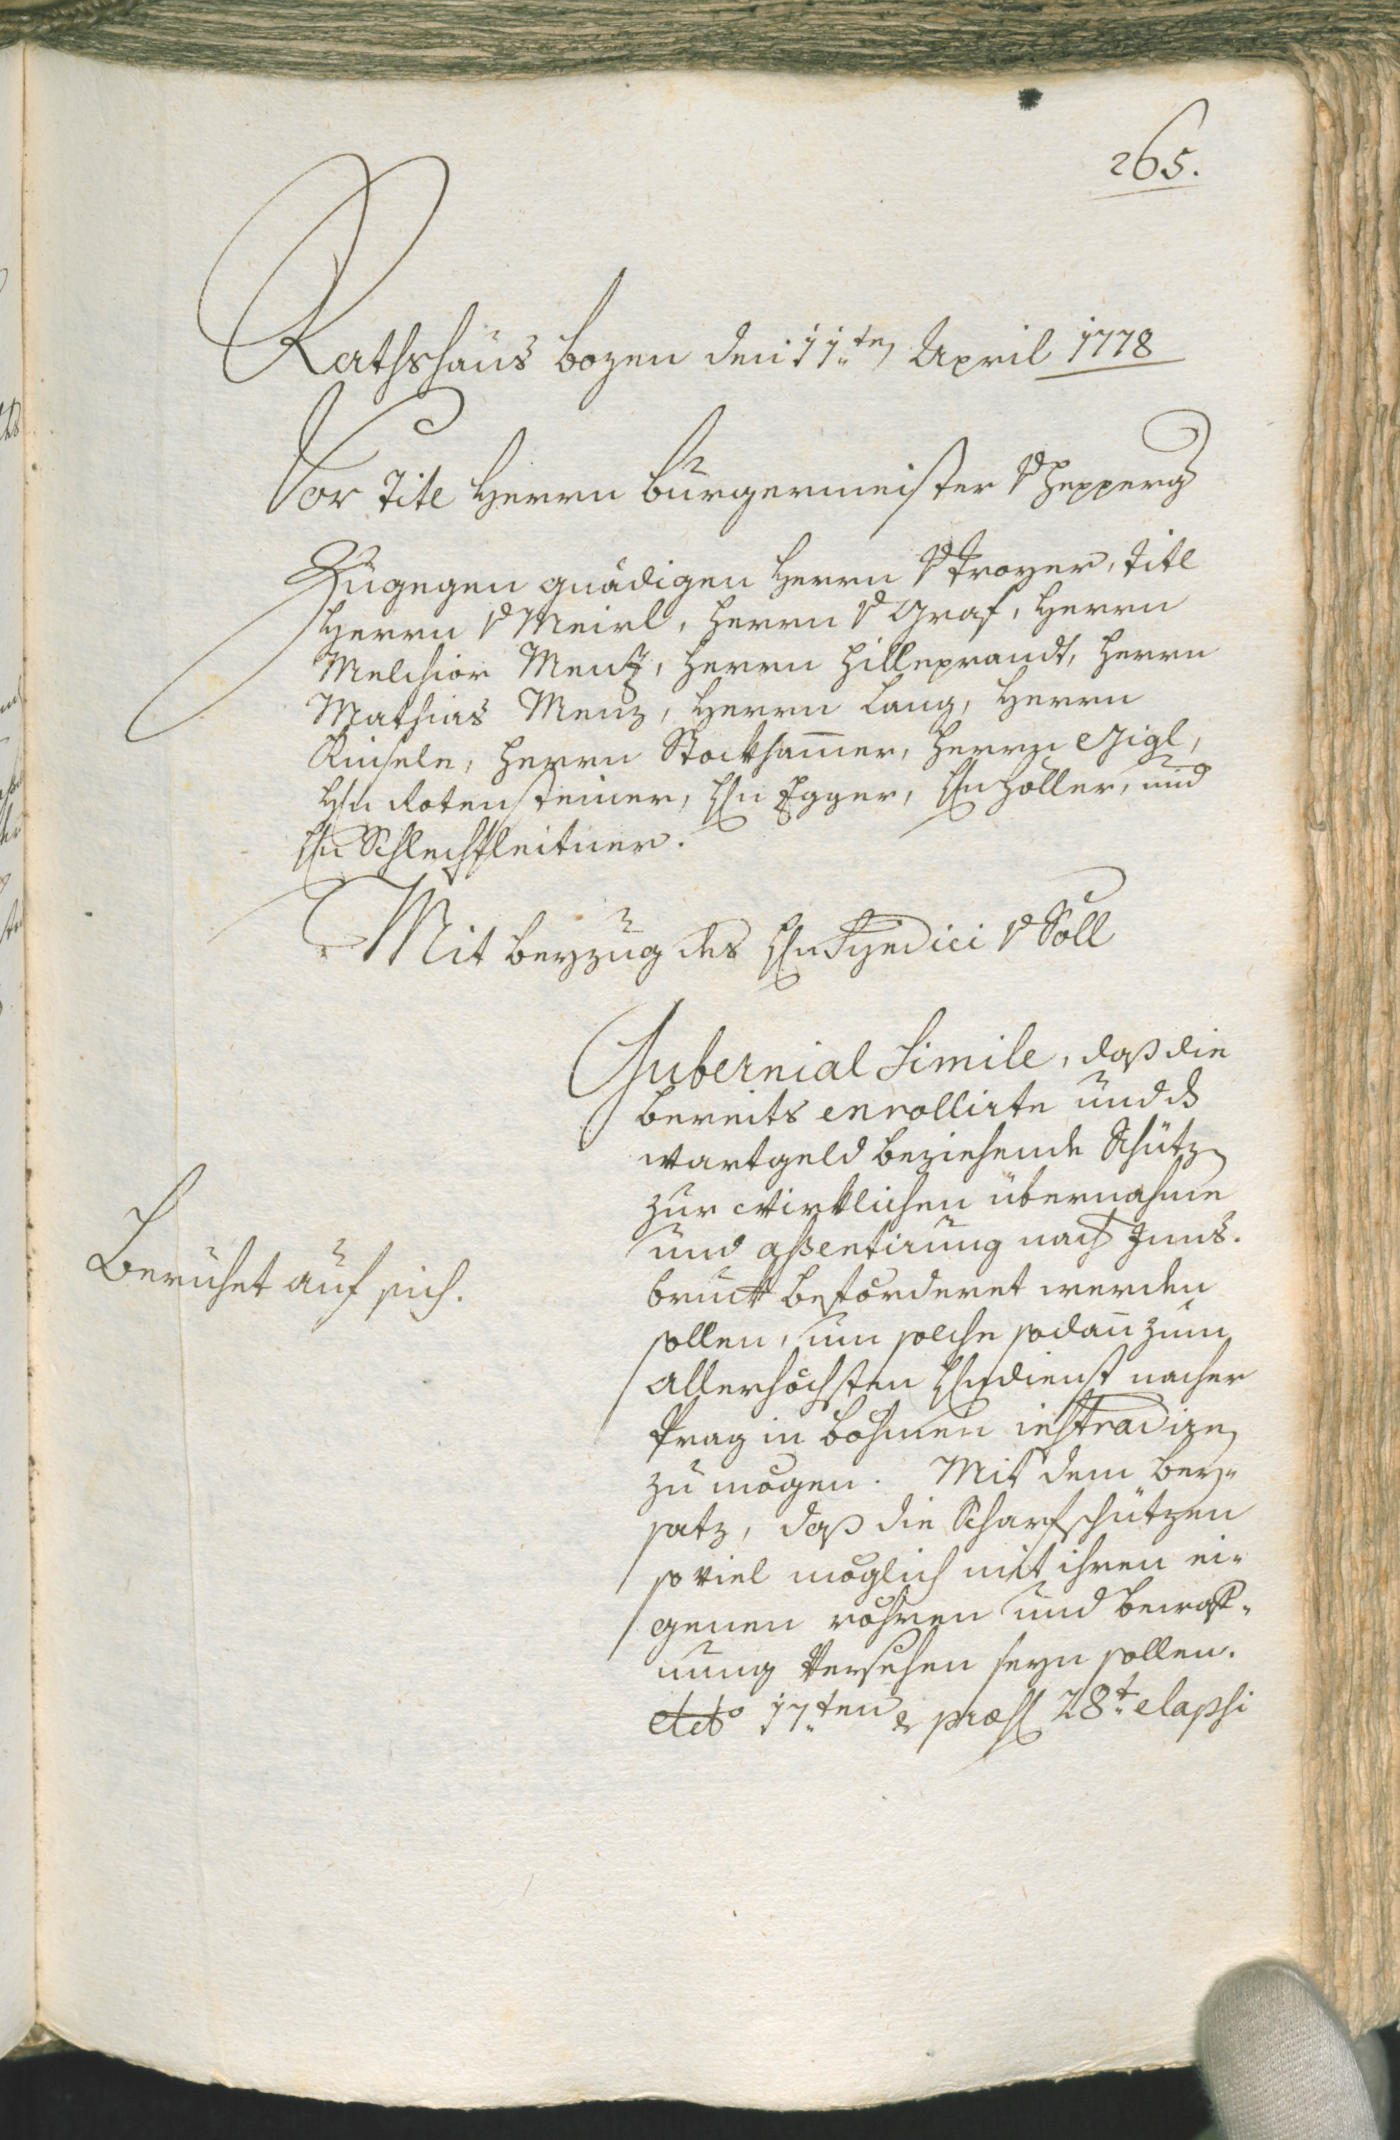 265.
Rathshaus bozen den 11.ten April 1778
Vor Titl Herrn bürgermeister v Hepperg
Zugegen gnädigen Herrn v Troyer, Titl
Herrn v Meirl, Herrn v Graf, Herrn
Melchior Menz, Herrn Hilleprandt, Herrn
Mathias Menz, Herrn Lang, Herrn
Kinsele, Herrn Stockhamer, Herrn Gigl,
Hn Rotensteiner, Hn Egger, Hn Höller, und
Hn Schlechtleitner.
Mit beyzug des Hn Syndici v Söll
Gubernial Simile, daß die
bereits enrollirte und
wartgeld beziehende Schützen
zur wirklichen übernahme
und aßentirung nach Jnns-
Beruhet auf sich.
bruck beförderet werden
sollen, um solche sodan zum
allerhöchsten Hndienst nacher
Prag in böhmen instradiren
zu mögen. Mit dem bey-
satz, daß die Scharfschützen
so viel möglich mit ihren ei-
genen röhren und bewaff-
nung versehen seyn sollen.
ddto 17.ten & præs 28.t elapsi